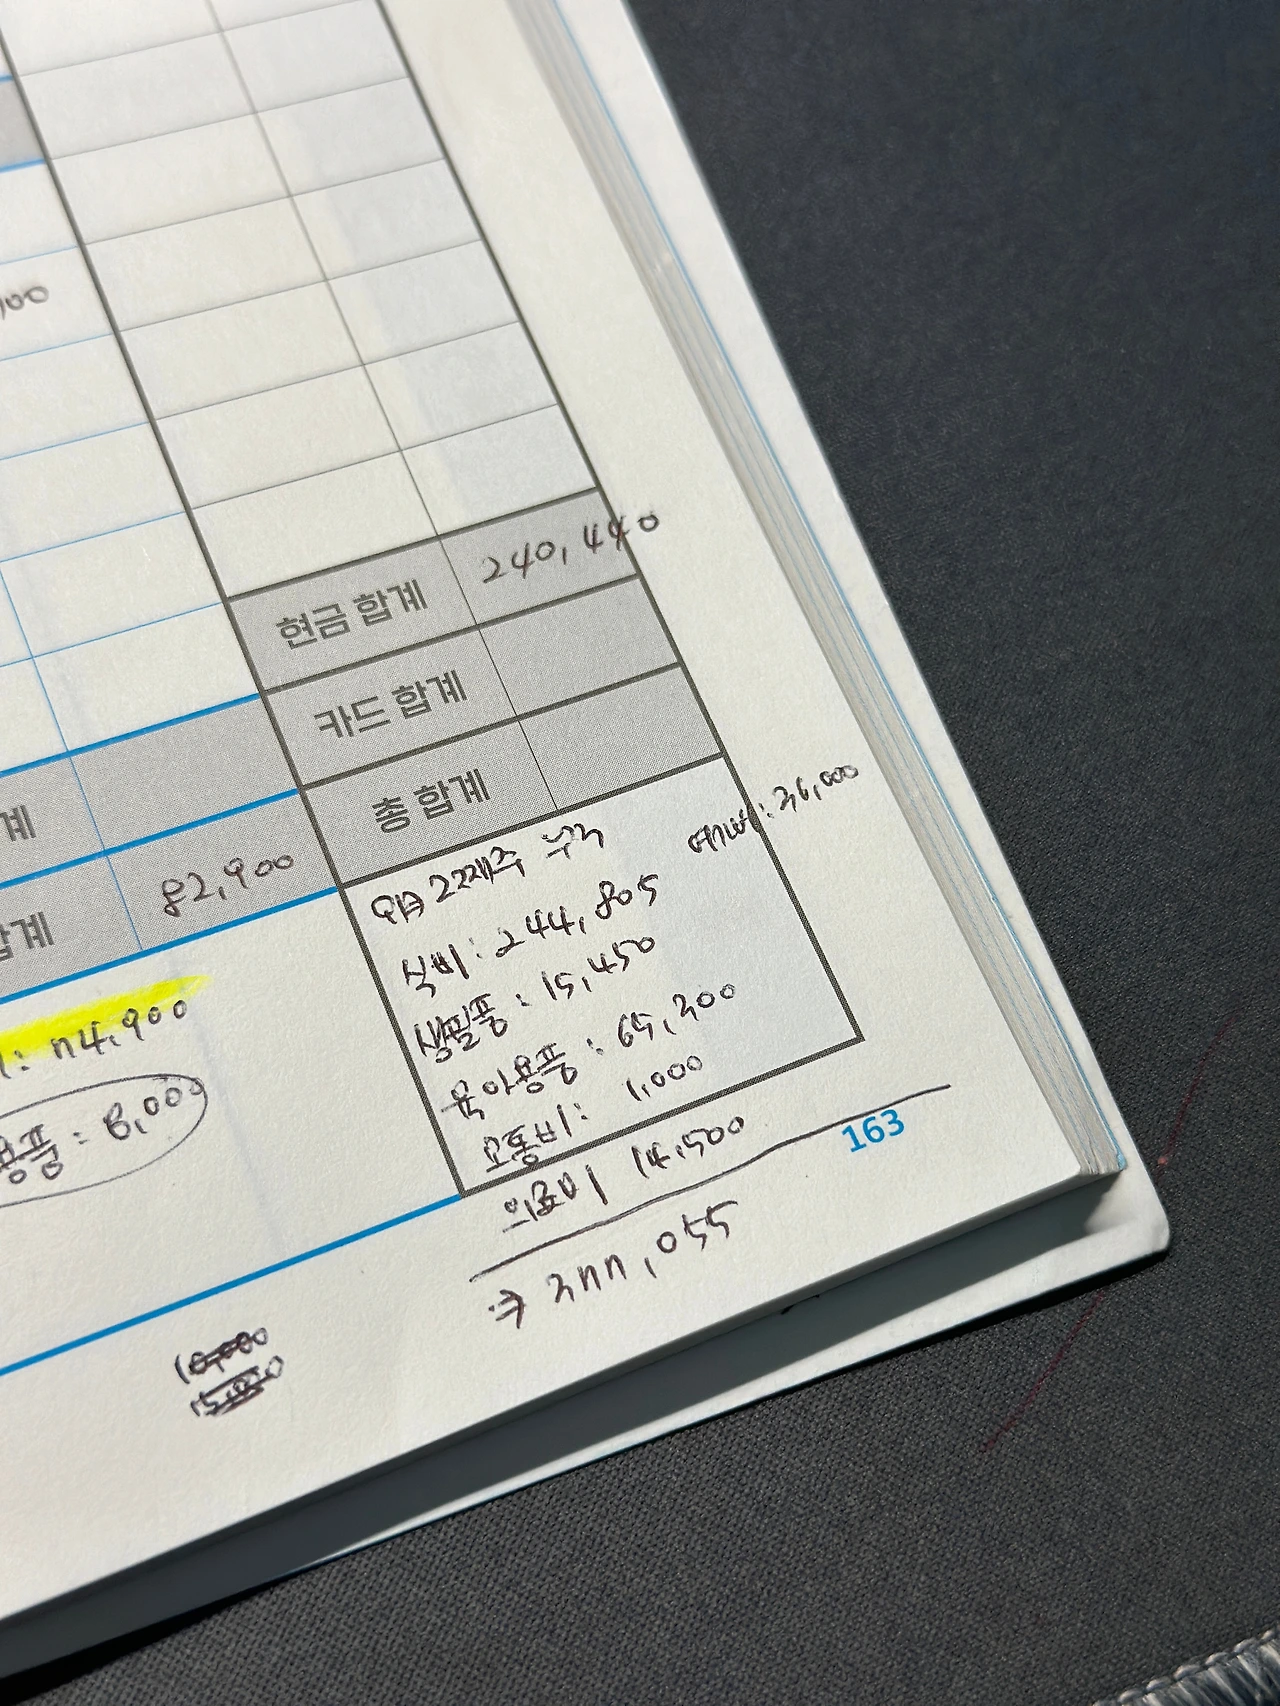 ,100
현금 합계 240,440
카드 합계
총 합계
계
합계 82,900
: 74,900
용품 : 8,000
째주 누적
: 36,000
식비 : 244,805
생필품 : 15,450
육아용품 : 65,300
교통비 : 1,000
의료비 14,500
163
⇒ 377,055